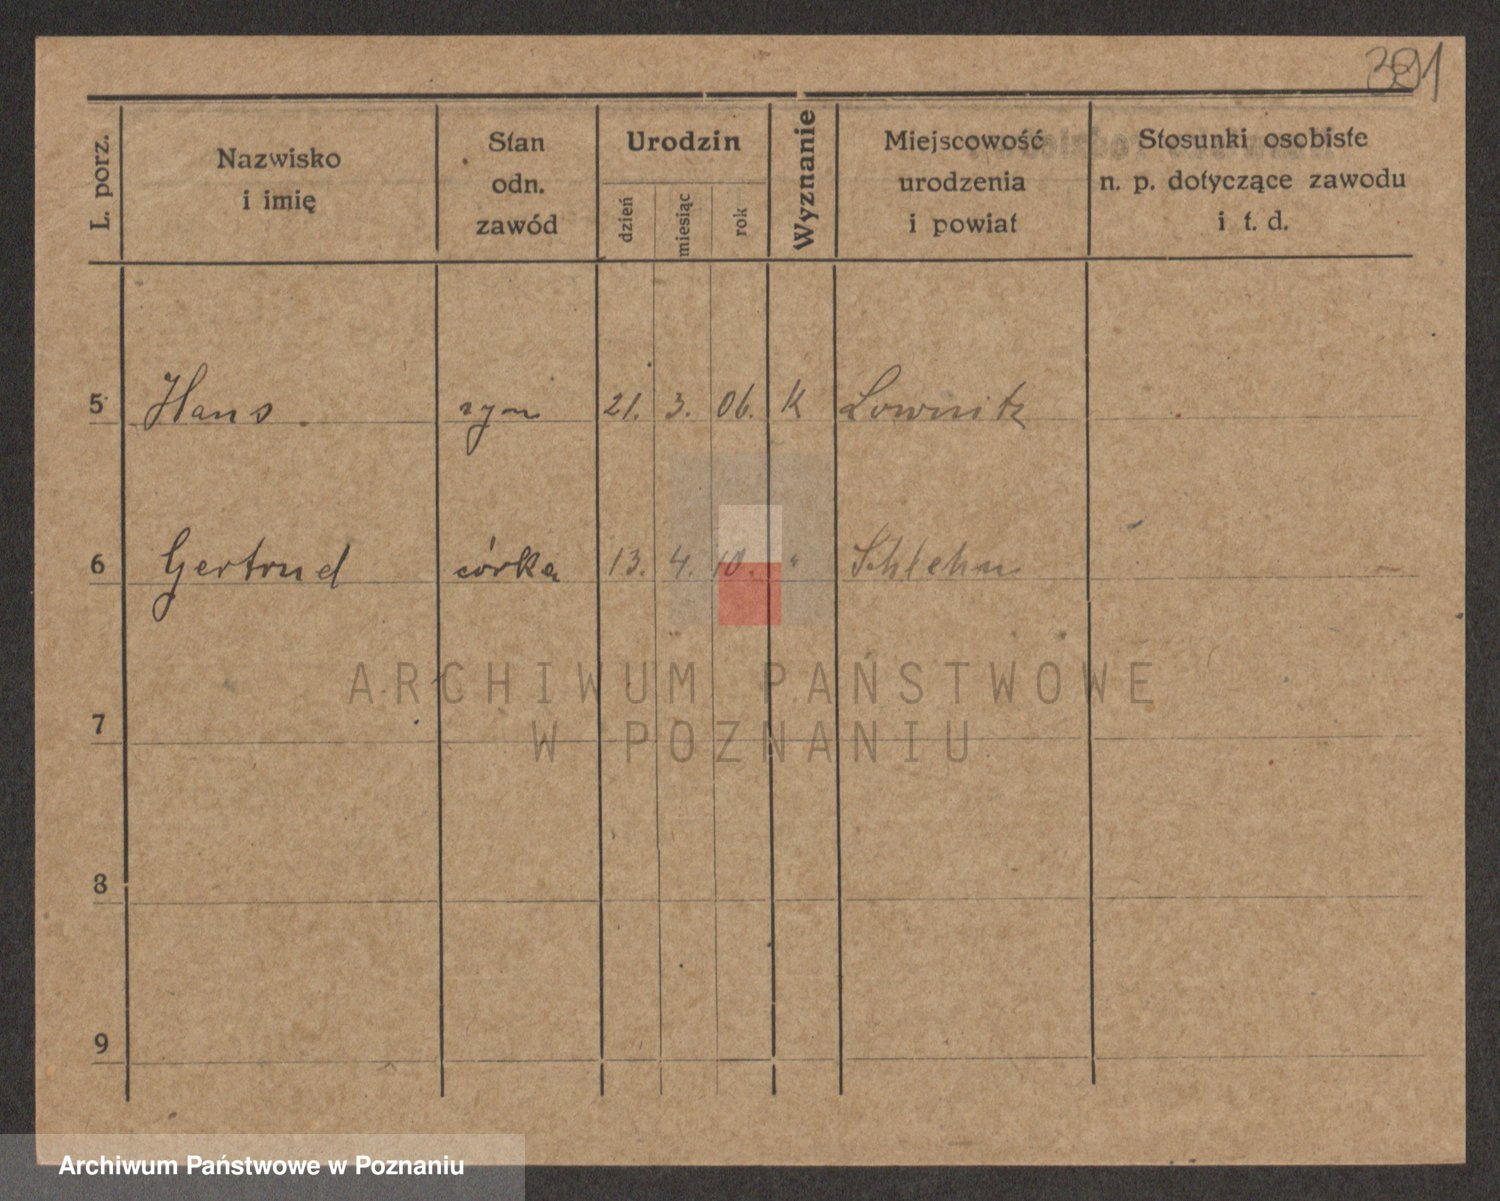 391
L. porz.
Nazwisko
i imię
Stan
odn.
zawód
Urodzin
dzień
miesiąc
rok
Wyznanie
Miejscowość
urodzenia
i powiat
Stosunki osobiste
n. p. dotyczące zawodu
i t. d.
5 Hans syn 21. 3. 06. K Lownitz
6 Gertrud córka 13. 4. 10. "
ARCHIWUM PAŃSTWOWE
W POZNANIU
7
8
9
Archiwum Państwowe w Poznaniu